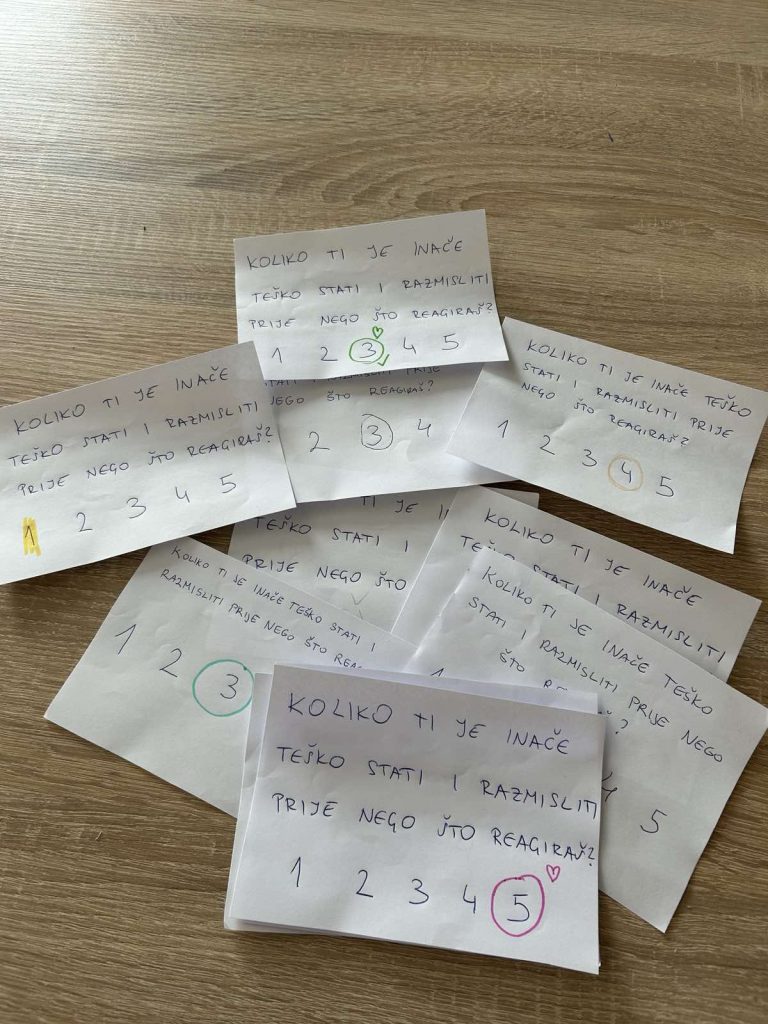 KOLIKO TI JE INAČE
TEŠKO STATI I RAZMISLITI
PRIJE NEGO ŠTO REAGIRAŠ?
1 2 3 4 5
PRIJE
REAGIRAŠ?
ŠTO
2 3 4
KOLIKO TI JE INAČE
TEŠKO STATI I RAZMISLITI
PRIJE NEGO ŠTO REAGIRAŠ?
1 2 3 4 5
KOLIKO TI JE INAČE TEŠKO
STATI I RAZMISLITI PRIJE
NEGO ŠTO REAGIRAŠ?
1 2 3 4 5
TI JE
TEŠKO STATI I
PRIJE NEGO ŠTO
KOLIKO TI JE INAČE
RAZMISLITI
KOLIKO TI JE INAČE TEŠKO STATI I
RAZMISLITI PRIJE NEGO ŠTO
1 2 3
KOLIKO TI JE INAČE TEŠKO
STATI I RAZMISLITI PRIJE NEGO
ŠTO
5
KOLIKO TI JE INAČE
TEŠKO STATI I RAZMISLITI
PRIJE NEGO ŠTO REAGIRAŠ?
1 2 3 4 5